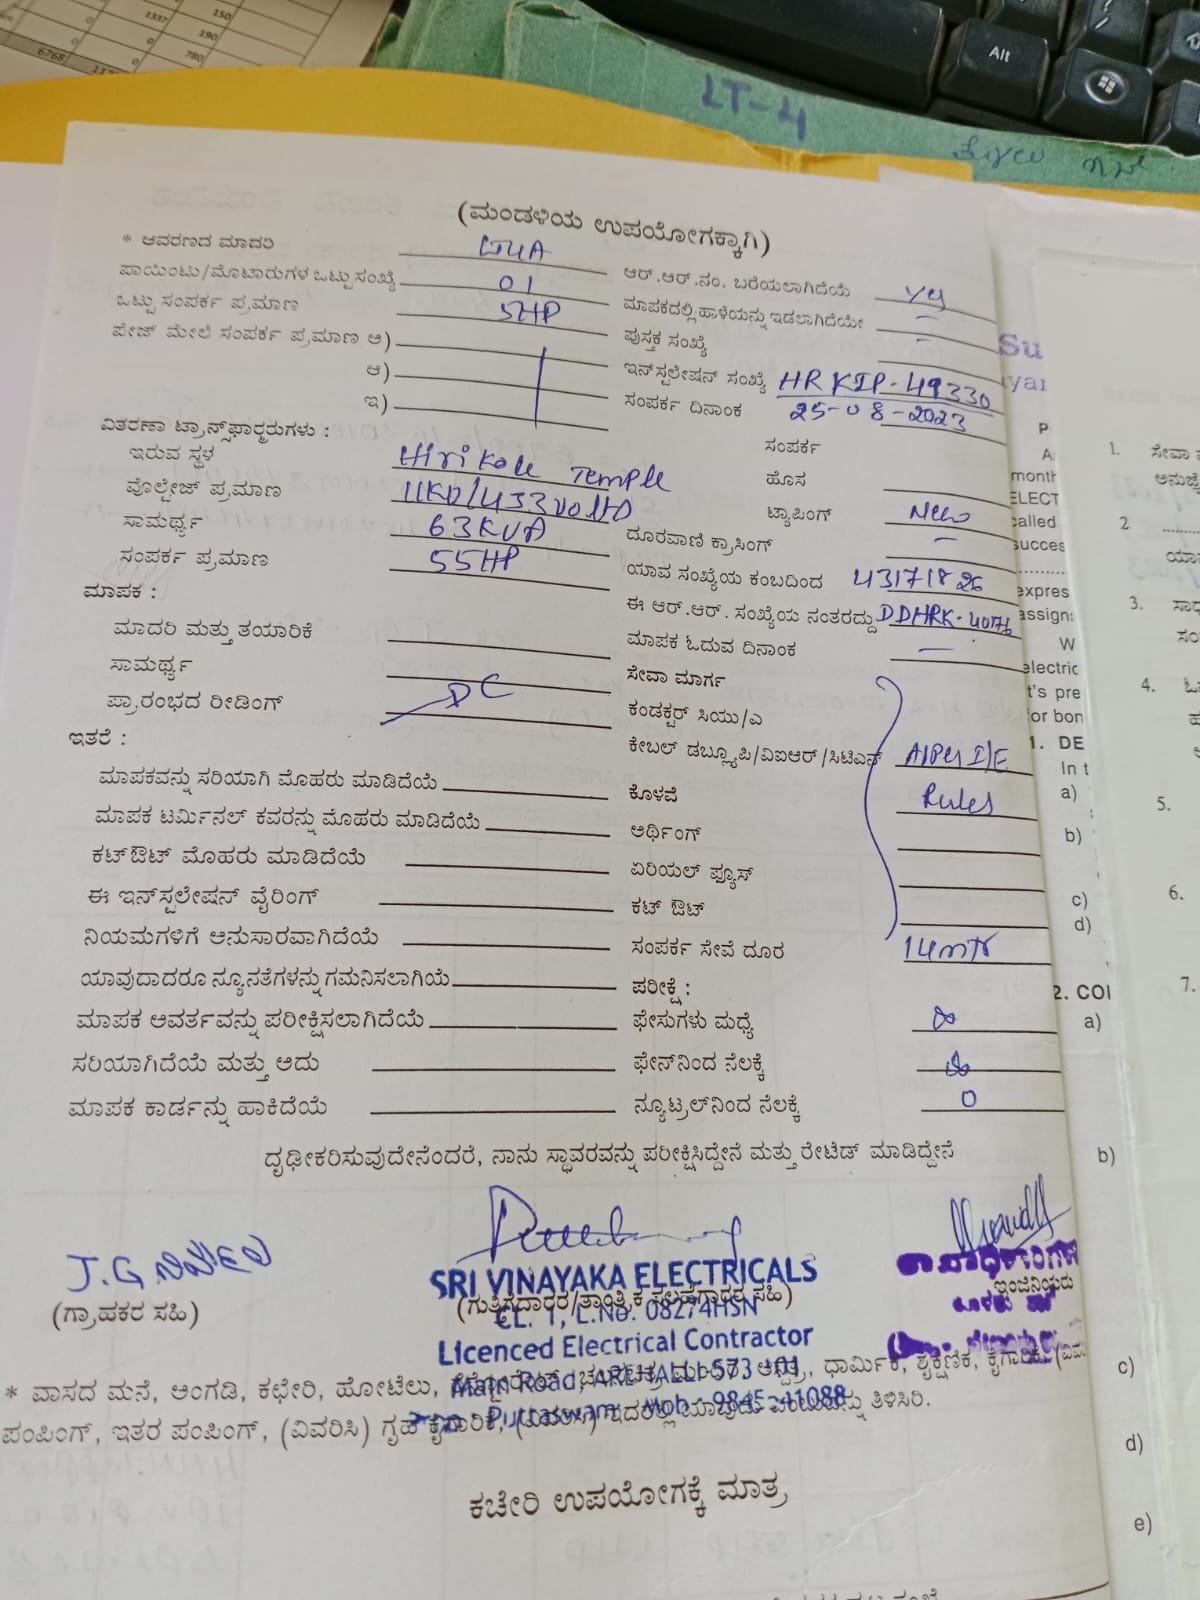 1337 150
0 0 190
6768 0 780
Alt
LT-4
(ಮಂಡಳಿಯ ಉಪಯೋಗಕ್ಕಾಗಿ)
* ಆವರಣದ ಮಾದರಿ LT4A
ಆರ್.ಆರ್.ನಂ. ಬರೆಯಲಾಗಿದೆಯೆ yes
ಪಾಯಿಂಟು/ಮೊಟಾರುಗಳ ಒಟ್ಟು ಸಂಖ್ಯೆ 01
ಮಾಪಕದಲ್ಲಿ ಹಾಳೆಯನ್ನು ಇಡಲಾಗಿದೆಯೇ –
ಒಟ್ಟು ಸಂಪರ್ಕ ಪ್ರಮಾಣ 5HP
ಪುಸ್ತಕ ಸಂಖ್ಯೆ –
ಪೇಜ್ ಮೇಲೆ ಸಂಪರ್ಕ ಪ್ರಮಾಣ ಆ)
ಇನ್‌ಸ್ಟಲೇಷನ್ ಸಂಖ್ಯೆ HRKIP-49330
ಆ)
ಸಂಪರ್ಕ ದಿನಾಂಕ 25-08-2023
ಇ)
ವಿತರಣಾ ಟ್ರಾನ್ಸ್‌ಫಾರ್ಮರುಗಳು :
ಸಂಪರ್ಕ
ಇರುವ ಸ್ಥಳ Hirikole Temple
ಹೊಸ
ವೊಲ್ಟೇಜ್ ಪ್ರಮಾಣ 11KV/433 Volts
ಟ್ಯಾಪಿಂಗ್ New
ಸಾಮರ್ಥ್ಯ 63KVA
ದೂರವಾಣಿ ಕ್ರಾಸಿಂಗ್ –
ಸಂಪರ್ಕ ಪ್ರಮಾಣ 55HP
ಯಾವ ಸಂಖ್ಯೆಯ ಕಂಬದಿಂದ 43171826
ಮಾಪಕ :
ಈ ಆರ್.ಆರ್. ಸಂಖ್ಯೆಯ ನಂತರದ್ದು DDHRK-
ಮಾದರಿ ಮತ್ತು ತಯಾರಿಕೆ
ಮಾಪಕ ಓದುವ ದಿನಾಂಕ –
ಸಾಮರ್ಥ್ಯ
ಸೇವಾ ಮಾರ್ಗ
ಪ್ರಾರಂಭದ ರೀಡಿಂಗ್ DC
ಕಂಡಕ್ಟರ್ ಸಿಯು/ಎ
ಇತರೆ :
ಕೇಬಲ್ ಡಬ್ಲ್ಯೂಪಿ/ವಿಐಆರ್/ಸಿಟಿಎಸ್ As Per I/E
ಮಾಪಕವನ್ನು ಸರಿಯಾಗಿ ಮೊಹರು ಮಾಡಿದೆಯೆ
ಕೊಳವೆ Rules
ಮಾಪಕ ಟರ್ಮಿನಲ್ ಕವರನ್ನು ಮೊಹರು ಮಾಡಿದೆಯೆ
ಅರ್ಥಿಂಗ್
ಕಟ್‌ಔಟ್ ಮೊಹರು ಮಾಡಿದೆಯೆ
ಏರಿಯಲ್ ಫ್ಯೂಸ್
ಈ ಇನ್‌ಸ್ಟಲೇಷನ್ ವೈರಿಂಗ್
ಕಟ್ ಔಟ್
ನಿಯಮಗಳಿಗೆ ಅನುಸಾರವಾಗಿದೆಯೆ
ಸಂಪರ್ಕ ಸೇವೆ ದೂರ 14mtr
ಯಾವುದಾದರೂ ನ್ಯೂನತೆಗಳನ್ನು ಗಮನಿಸಲಾಗಿಯೆ
ಪರೀಕ್ಷೆ :
ಮಾಪಕ ಆವರ್ತವನ್ನು ಪರೀಕ್ಷಿಸಲಾಗಿದೆಯೆ
ಫೇಸುಗಳು ಮಧ್ಯೆ ∞
ಸರಿಯಾಗಿದೆಯೆ ಮತ್ತು ಅದು
ಫೇಸ್‌ನಿಂದ ನೆಲಕ್ಕೆ ∞
ಮಾಪಕ ಕಾರ್ಡನ್ನು ಹಾಕಿದೆಯೆ
ನ್ಯೂಟ್ರಲ್‌ನಿಂದ ನೆಲಕ್ಕೆ 0
ದೃಢೀಕರಿಸುವುದೇನೆಂದರೆ, ನಾನು ಸ್ಥಾವರವನ್ನು ಪರೀಕ್ಷಿಸಿದ್ದೇನೆ ಮತ್ತು ರೇಟೆಡ್ ಮಾಡಿದ್ದೇನೆ
J.G.
(ಗ್ರಾಹಕರ ಸಹಿ)
SRI VINAYAKA ELECTRICALS
(ಗುತ್ತಿಗೆದಾರರ/ತಾಂತ್ರಿಕ ಸಲಹೆಗಾರರ ಸಹಿ)
CL. 1, L.No. 08274HSN
Licenced Electrical Contractor
Main Road, AREHALLI-573 101
ಇಂಜಿನಿಯರು
* ವಾಸದ ಮನೆ, ಅಂಗಡಿ, ಕಛೇರಿ, ಹೋಟೆಲು, ಧಾರ್ಮಿಕ, ಶೈಕ್ಷಣಿಕ, ಕೈಗಾರಿಕೆ
ಪಂಪಿಂಗ್, ಇತರ ಪಂಪಿಂಗ್, (ವಿವರಿಸಿ) ಗೃಹ ಕೈಗಾರಿಕೆ, ತಿಳಿಸಿರಿ.
ಕಚೇರಿ ಉಪಯೋಗಕ್ಕೆ ಮಾತ್ರ
Su
yar
month
ELECT
called
succes
expres
assign
W
electric
t's pre
for bon
1. DE
In t
a)
b)
c)
d)
2. COI
a)
b)
c)
d)
e)
1. ಸೇವಾ
2
3.
4.
5.
6.
7.